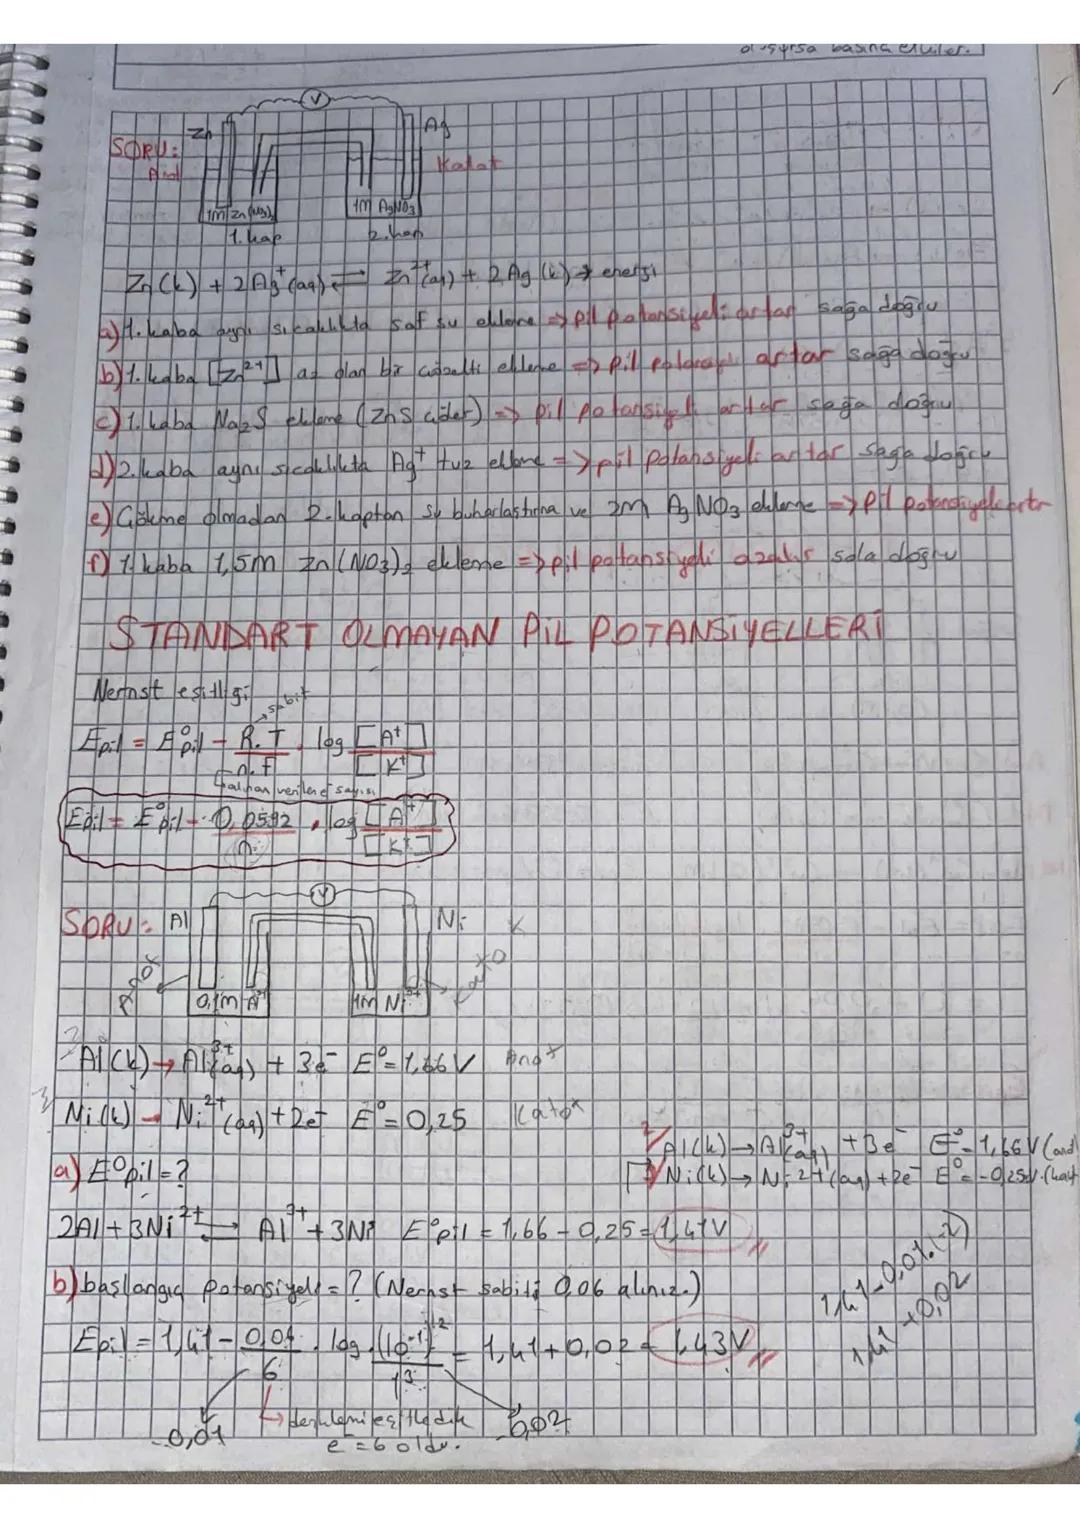 oluşursa basınç etkiler.
V
SORU:
Zn
Ag
Anot
Katot
1M Zn(NO3)2
1M AgNO3
1. kap
2. kap
Zn(k) + 2Ag⁺(aq) ⇌ Zn²⁺(aq) + 2Ag(k) → enerji
a) 1. kaba aynı sıcaklıkta saf su ekleme => pil potansiyeli artar sağa doğru
b) 1. kaba [Zn²⁺] az olan bir çözelti ekleme => pil potansiyeli artar sağa doğru
c) 1. kaba Na2S ekleme (ZnS çöker) => pil potansiyeli artar sağa doğru
d) 2. kaba aynı sıcaklıkta Ag⁺ tuz ekleme => pil potansiyeli artar sağa doğru
e) Çökme olmadan 2. kaptan su buharlaştırma ve 2M AgNO3 ekleme => pil potansiyeli artar
f) 1. kaba 1,5M Zn(NO3)2 ekleme => pil potansiyeli azalır sola doğru
STANDART OLMAYAN PİL POTANSİYELLERİ
Nernst eşitliği
sabit
Epil = E°pil - R.T / n.F . log [A⁺] / [K⁺]
alınan verilen e⁻ sayısı
Epil = E°pil - 0,0592 / n . log [A⁺] / [K⁺]
V
SORU: Al
Ni
K
Anot
Katot
0,1M Al³⁺
1M Ni²⁺
2/ Al(k) → Al³⁺(aq) + 3e⁻ E° = 1,66V Anot
3/ Ni(k) → Ni²⁺(aq) + 2e⁻ E° = 0,25 Katot
2/ Al(k) → Al³⁺(aq) + 3e⁻ E° = 1,66V (anot
3/ Ni(k) → Ni²⁺(aq) + 2e⁻ E° = -0,25V (kat
a) E°pil = ?
2Al + 3Ni²⁺ ⇌ Al³⁺ + 3Ni E°pil = 1,66 - 0,25 = 1,41V
b) başlangıç potansiyeli = ? (Nernst sabiti 0,06 alınız.)
1,41 - 0,01.(-2)
1,41 + 0,02
Epil = 1,41 - 0,06 / 6 . log (10⁻¹)² / 1³ = 1,41 + 0,02 = 1,43V
-0,01
denklemi eşitledik
e = 6 oldu.
0,02